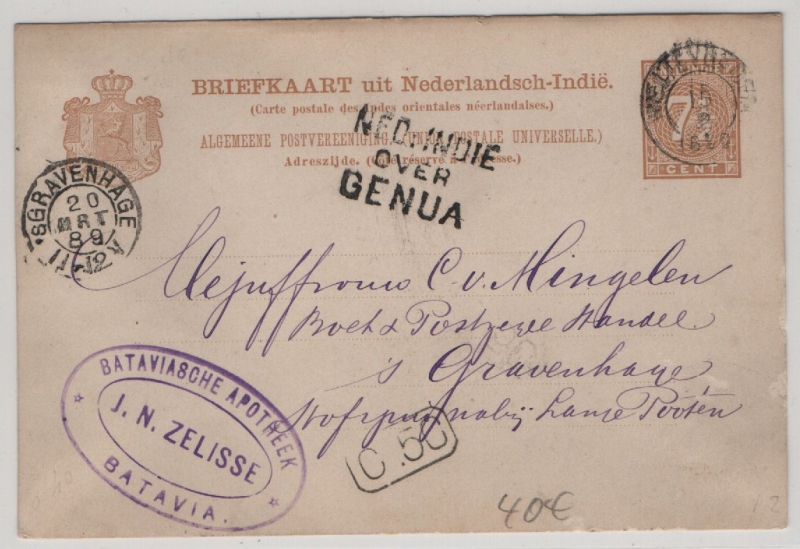 BRIEFKAART uit Nederlandsch-Indië.
(Carte postale des Indes orientales néerlandaises.)
ALGEMEENE POSTVEREENIGING. (UNION POSTALE UNIVERSELLE.)
Adreszijde. (Côté réservé à l'adresse.)
WELTEVREDEN
15
2
1889
7½
CENT
NED. INDIE
OVER
GENUA
'SGRAVENHAGE
20
MRT
89
Mejuffrouw C. v. Mingelen
Boek & Postzegel Handel
's Gravenhage
Hofsingel nabij Lange Pooten
BATAVIASCHE APOTHEEK
J. N. ZELISSE
BATAVIA.
C.50
40€
12